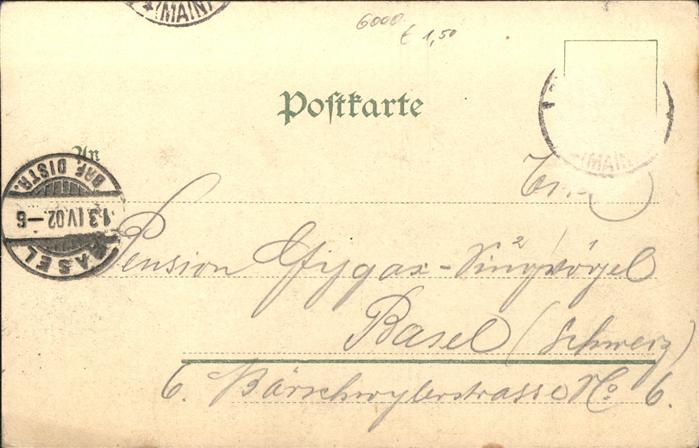 (MAIN)
6000
€ 1,50
Postkarte
(MAIN)
An
BASEL
13.IV.02–6
BRF. DISTR.
Pension Gysgax-Singvögel
Basel (Schweiz)
6. Bärschwylerstrasse No 6.